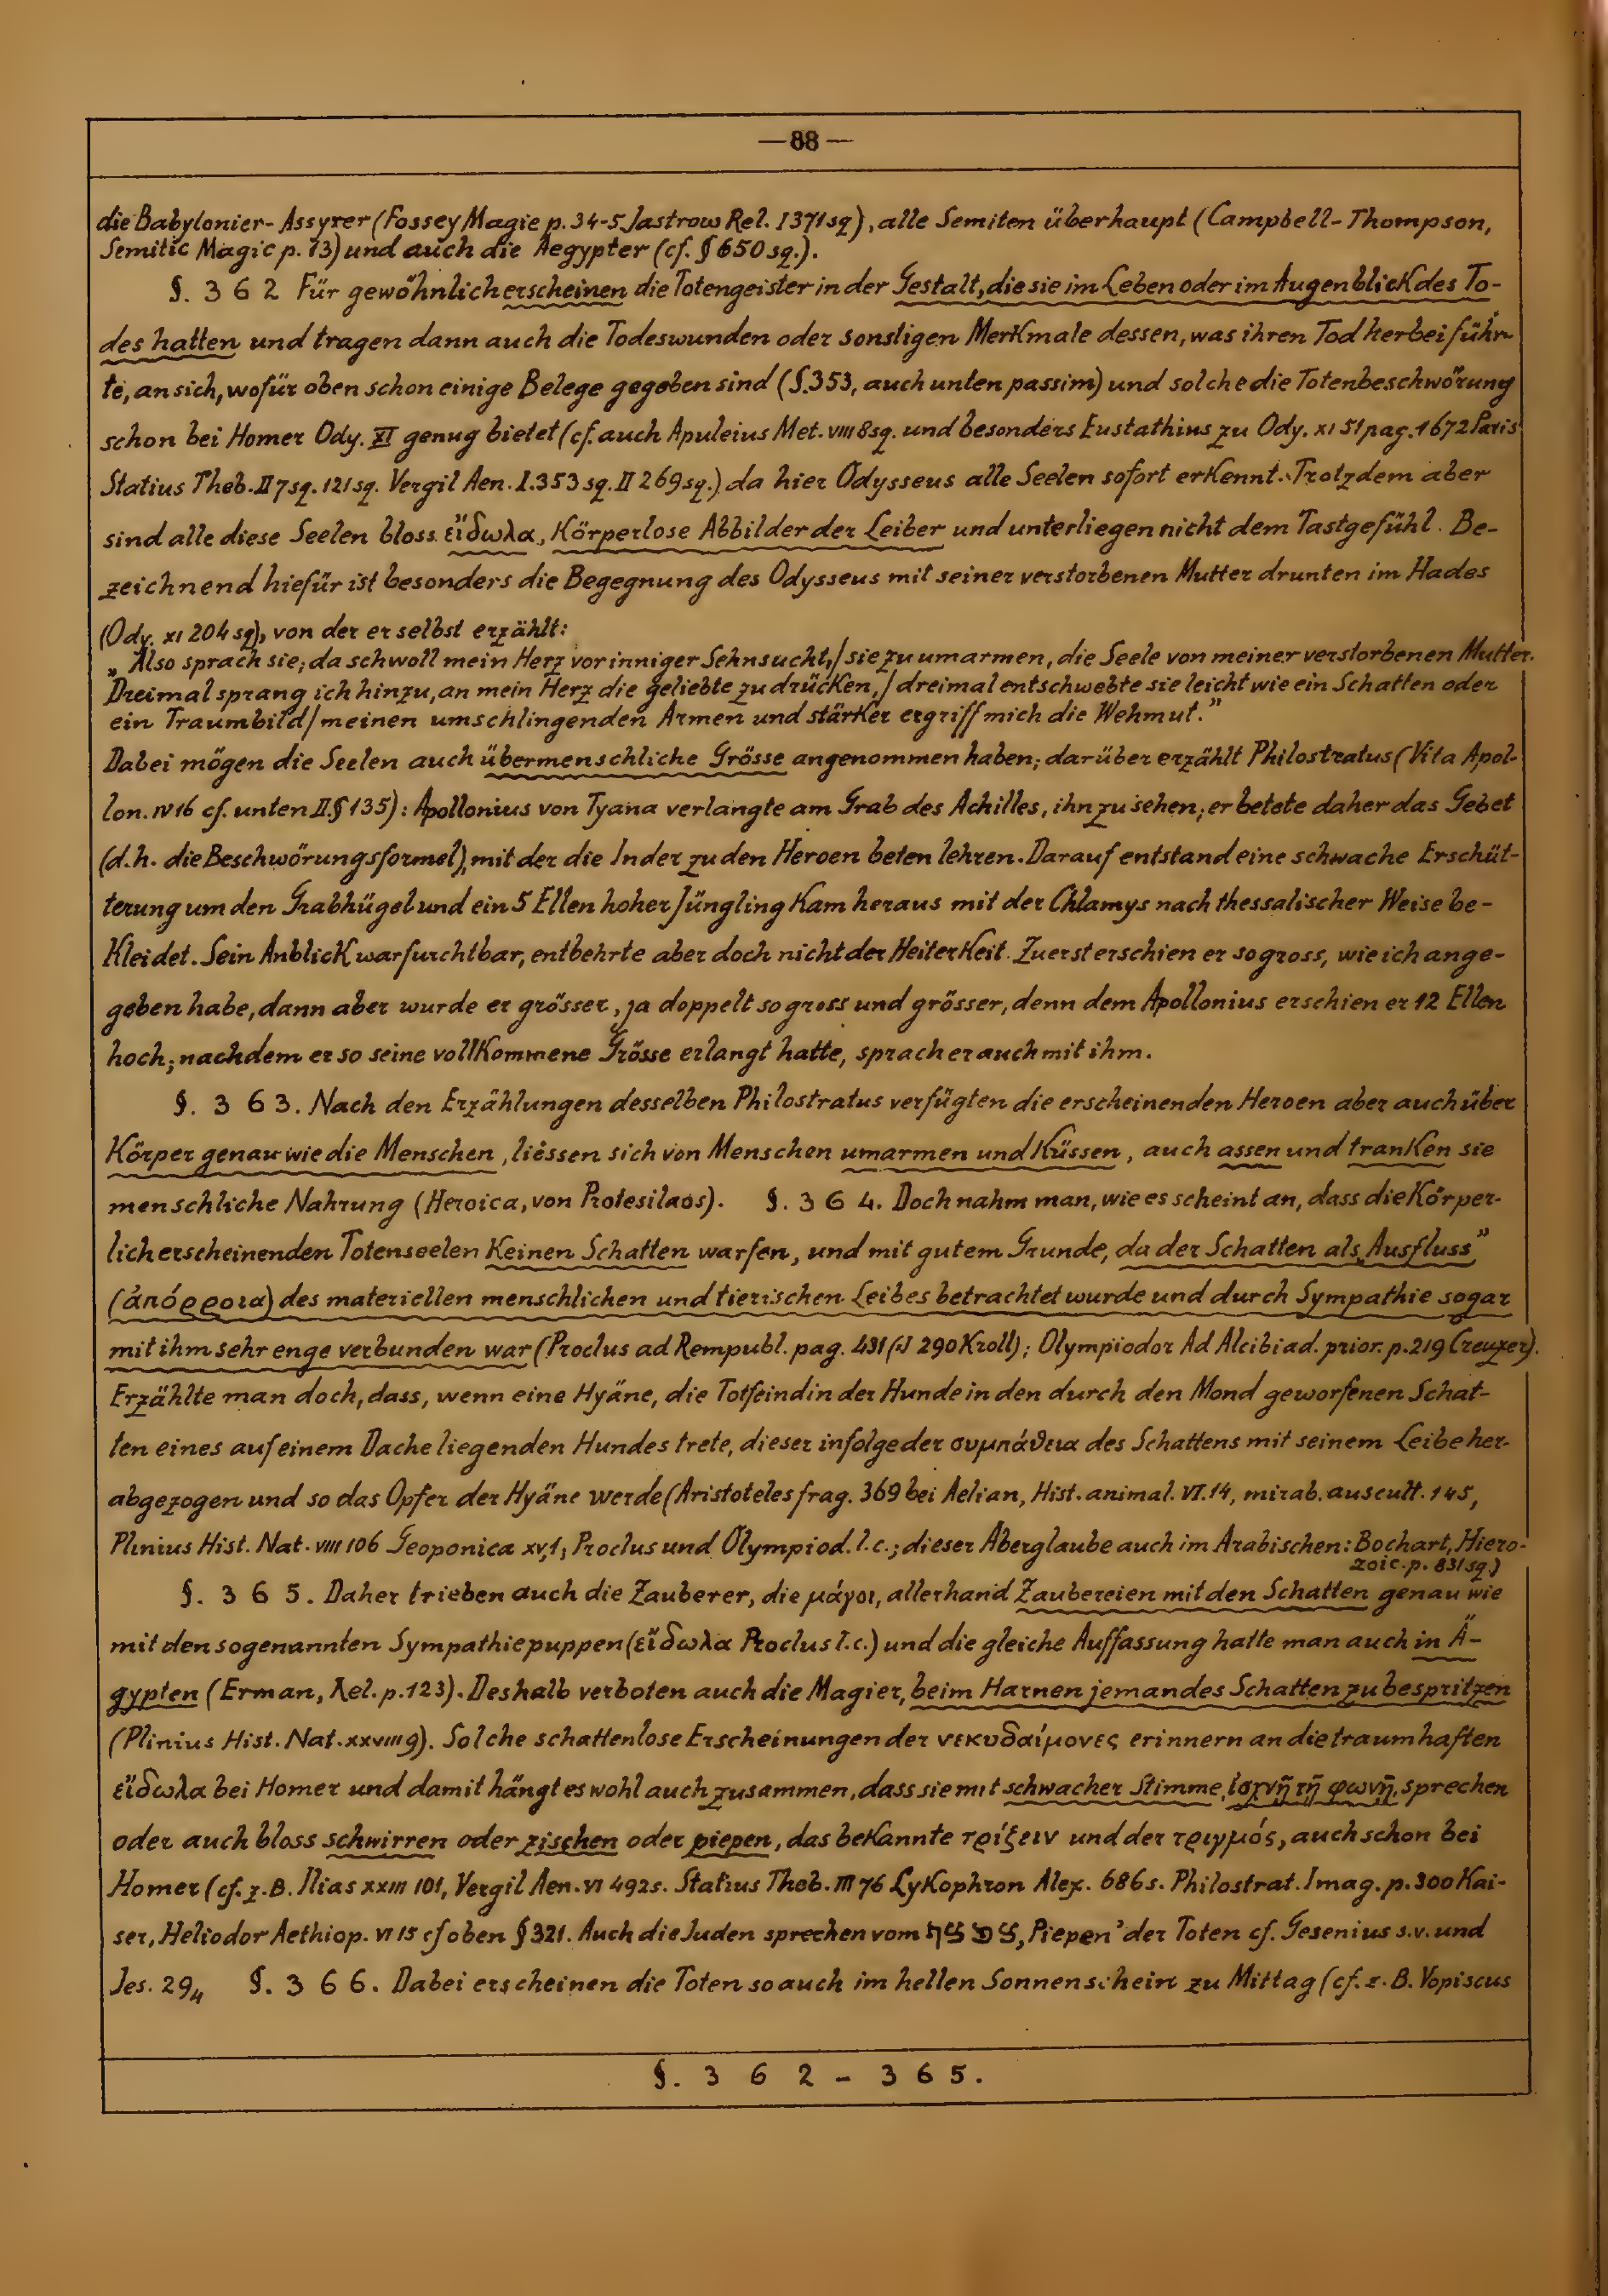 —88—
die Babylonier-Assyrer (Fossey Magie p. 34-5 Jastrow Rel. I 371 sq), alle Semiten überhaupt (Campbell-Thompson,
Semitic Magic p. 13) und auch die Aegypter (cf. § 650 sq.).
§. 362 Für gewöhnlich erscheinen die Totengeister in der Gestalt, die sie im Leben oder im Augenblick des To-
des hatten und tragen dann auch die Todeswunden oder sonstigen Merkmale dessen, was ihren Tod herbeiführ-
te, an sich, wofür oben schon einige Belege gegeben sind (§.353, auch unten passim) und solche die Totenbeschwörung
schon bei Homer Ody. XI genug bietet (cf. auch Apuleius Met. VIII 8 sq. und besonders Eustathius zu Ody. XI 51 pag. 1672 Paris
Statius Theb. II 7 sq. 121 sq. Vergil Aen. I. 353 sq. II 269 sq.) da hier Odysseus alle Seelen sofort erkennt. Trotzdem aber
sind alle diese Seelen bloss εἴδωλα, Körperlose Abbilder der Leiber und unterliegen nicht dem Tastgefühl. Be-
zeichnend hiefür ist besonders die Begegnung des Odysseus mit seiner verstorbenen Mutter drunten im Hades
(Ody. XI 204 sq), von der er selbst erzählt:
„Also sprach sie; da schwoll mein Herz vor inniger Sehnsucht,/ sie zu umarmen, die Seele von meiner verstorbenen Mutter.
Dreimal sprang ich hinzu, an mein Herz die geliebte zu drücken,/ dreimal entschwebte sie leicht wie ein Schatten oder
ein Traumbild/ meinen umschlingenden Armen und stärker ergriff mich die Wehmut.”
Dabei mögen die Seelen auch übermenschliche Grösse angenommen haben; darüber erzählt Philostratus (Vita Apol-
lon. IV 16 cf. unten II.§ 135): Apollonius von Tyana verlangte am Grab des Achilles, ihn zu sehen; er betete daher das Gebet
(d.h. die Beschwörungsformel), mit der die Inder zu den Heroen beten lehren. Darauf entstand eine schwache Erschüt-
terung um den Grabhügel und ein 5 Ellen hoher Jüngling kam heraus mit der Chlamys nach thessalischer Weise be-
kleidet. Sein Anblick war furchtbar, entbehrte aber doch nicht der Heiterkeit. Zuerst erschien er so gross, wie ich ange-
geben habe, dann aber wurde er grösser, ja doppelt so gross und grösser, denn dem Apollonius erschien er 12 Ellen
hoch; nachdem er so seine vollkommene Grösse erlangt hatte, sprach er auch mit ihm.
§. 363. Nach den Erzählungen desselben Philostratus verfügten die erscheinenden Heroen aber auch über
Körper genau wie die Menschen, liessen sich von Menschen umarmen und küssen, auch assen und tranken sie
menschliche Nahrung (Heroica, von Protesilaos). §. 364. Doch nahm man, wie es scheint an, dass die Körper-
lich erscheinenden Totenseelen keinen Schatten warfen, und mit gutem Grunde, da der Schatten als „Ausfluss”
(ἀπόρροια) des materiellen menschlichen und tierischen Leibes betrachtet wurde und durch Sympathie sogar
mit ihm sehr enge verbunden war (Proclus ad Rempubl. pag. 431 (I 290 Kroll); Olympiodor Ad Alcibiad. prior. p. 219 Creuzer).
Erzählte man doch, dass, wenn eine Hyäne, die Totfeindin der Hunde in den durch den Mond geworfenen Schat-
ten eines auf einem Dache liegenden Hundes trete, dieser infolge der συμπάθεια des Schattens mit seinem Leibe her-
abgezogen und so das Opfer der Hyäne werde (Aristoteles frag. 369 bei Aelian, Hist. animal. VI. 14, mirab. auscult. 145,
Plinius Hist. Nat. VIII 106 Geoponica XV,1, Proclus und Olympiod. l.c.; dieser Aberglaube auch im Arabischen: Bochart, Hiero-
zoic. p. 831 sq.)
§. 365. Daher trieben auch die Zauberer, die μάγοι, allerhand Zaubereien mit den Schatten genau wie
mit den sogenannten Sympathiepuppen (εἴδωλα Proclus l.c.) und die gleiche Auffassung hatte man auch in Ä-
gypten (Erman, Rel. p. 123). Deshalb verboten auch die Magier, beim Harnen jemandes Schatten zu bespritzen
(Plinius Hist. Nat. XXVIII 9). Solche schattenlose Erscheinungen der νεκυδαίμονες erinnern an die traumhaften
εἴδωλα bei Homer und damit hängt es wohl auch zusammen, dass sie mit schwacher Stimme, ἰσχνῇ τῇ φωνῇ, sprechen
oder auch bloss schwirren oder zischen oder piepen, das bekannte τρίζειν und der τριγμός, auch schon bei
Homer (cf. z.B. Ilias XXIII 101, Vergil Aen. VI 492 s. Statius Theb. III 76 Lykophron Alex. 686 s. Philostrat. Imag. p. 300 Kai-
ser, Heliodor Aethiop. VI 15 cf oben § 321. Auch die Juden sprechen vom „Piepen’ der Toten cf. Gesenius s.v. und
Jes. 29₄ §. 366. Dabei erscheinen die Toten so auch im hellen Sonnenschein zu Mittag (cf. z. B. Vopiscus
§. 362 - 365.